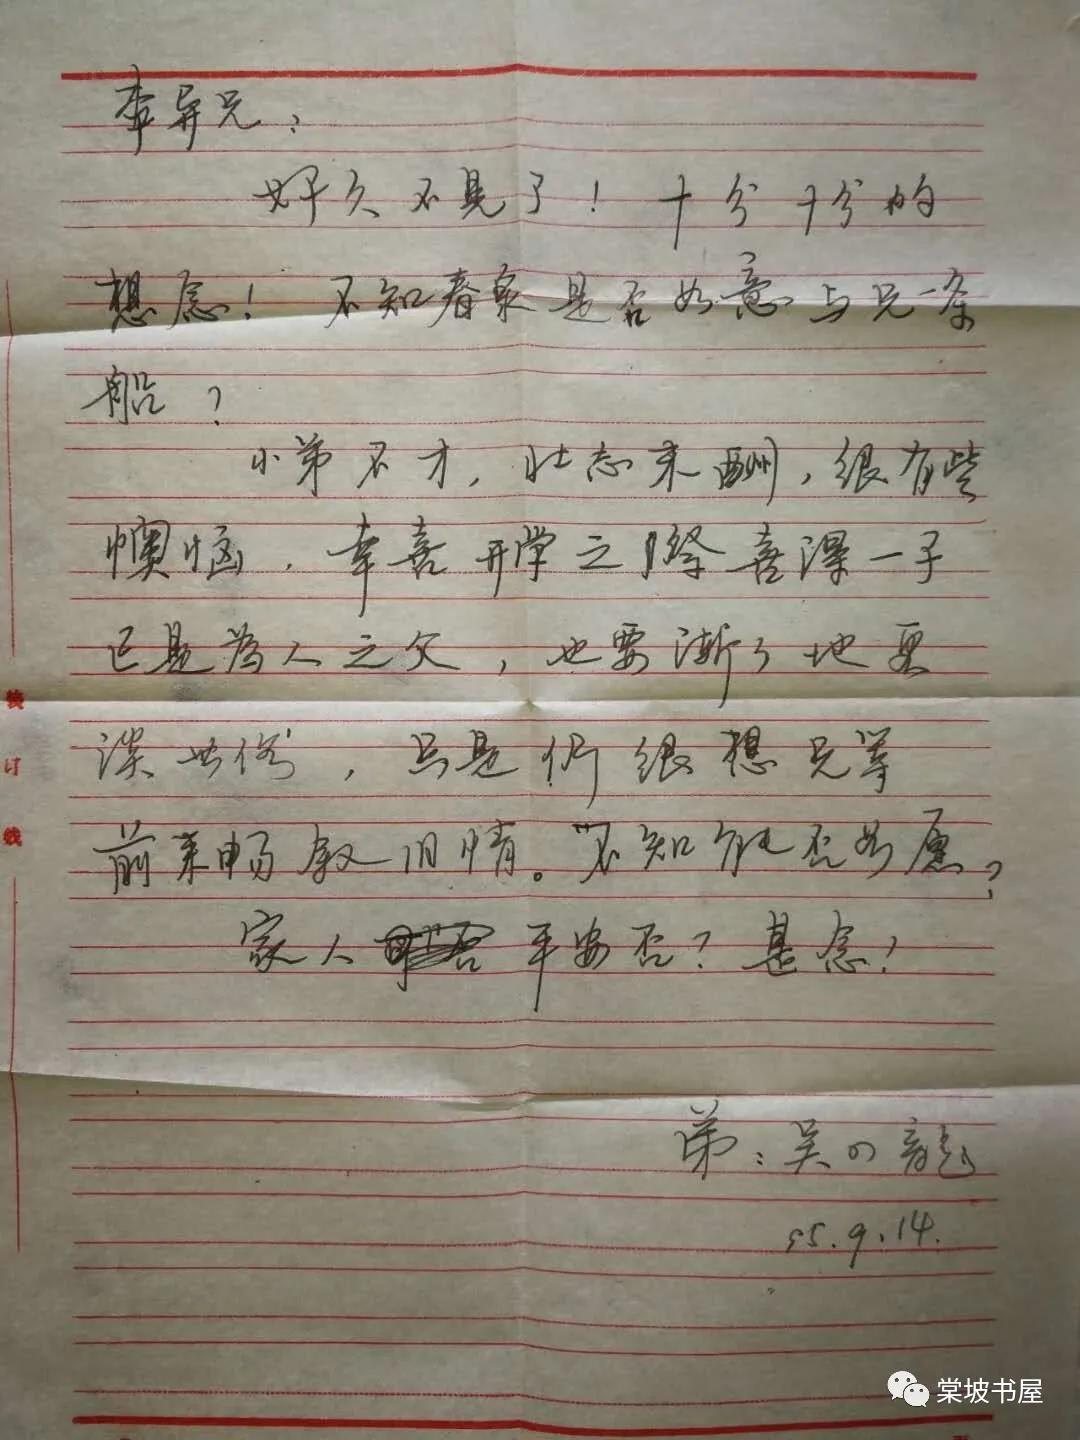 李异兄：
好久不见了！十分十分的
想念！不知春泉是否如意与兄一条
船？
小弟不才，壮志未酬，很有些
懊恼，幸喜开学之际喜得一子
已是为人之父，也要渐々地要
谈世俗，只是仍很想兄等
前来畅叙旧情。不知能否如愿？
家人平安否？甚念！
弟：吴小龙
95.9.14.
装订线
棠坡书屋